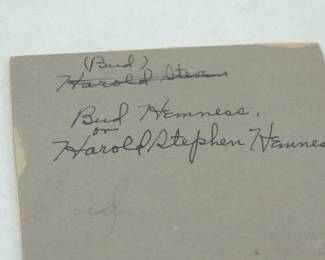 (Bud)
Harold Steven
Bud Hemness,
or
Harold Stephen Hemnes
Bud